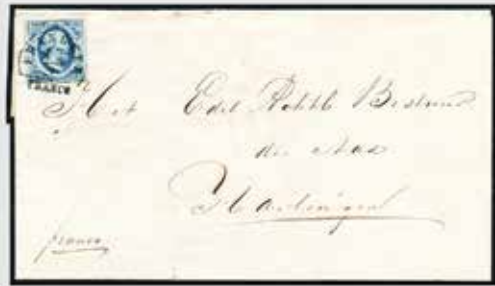 FRANCO
Het Edel Achtb Bestuur
der
Harlingen
franco